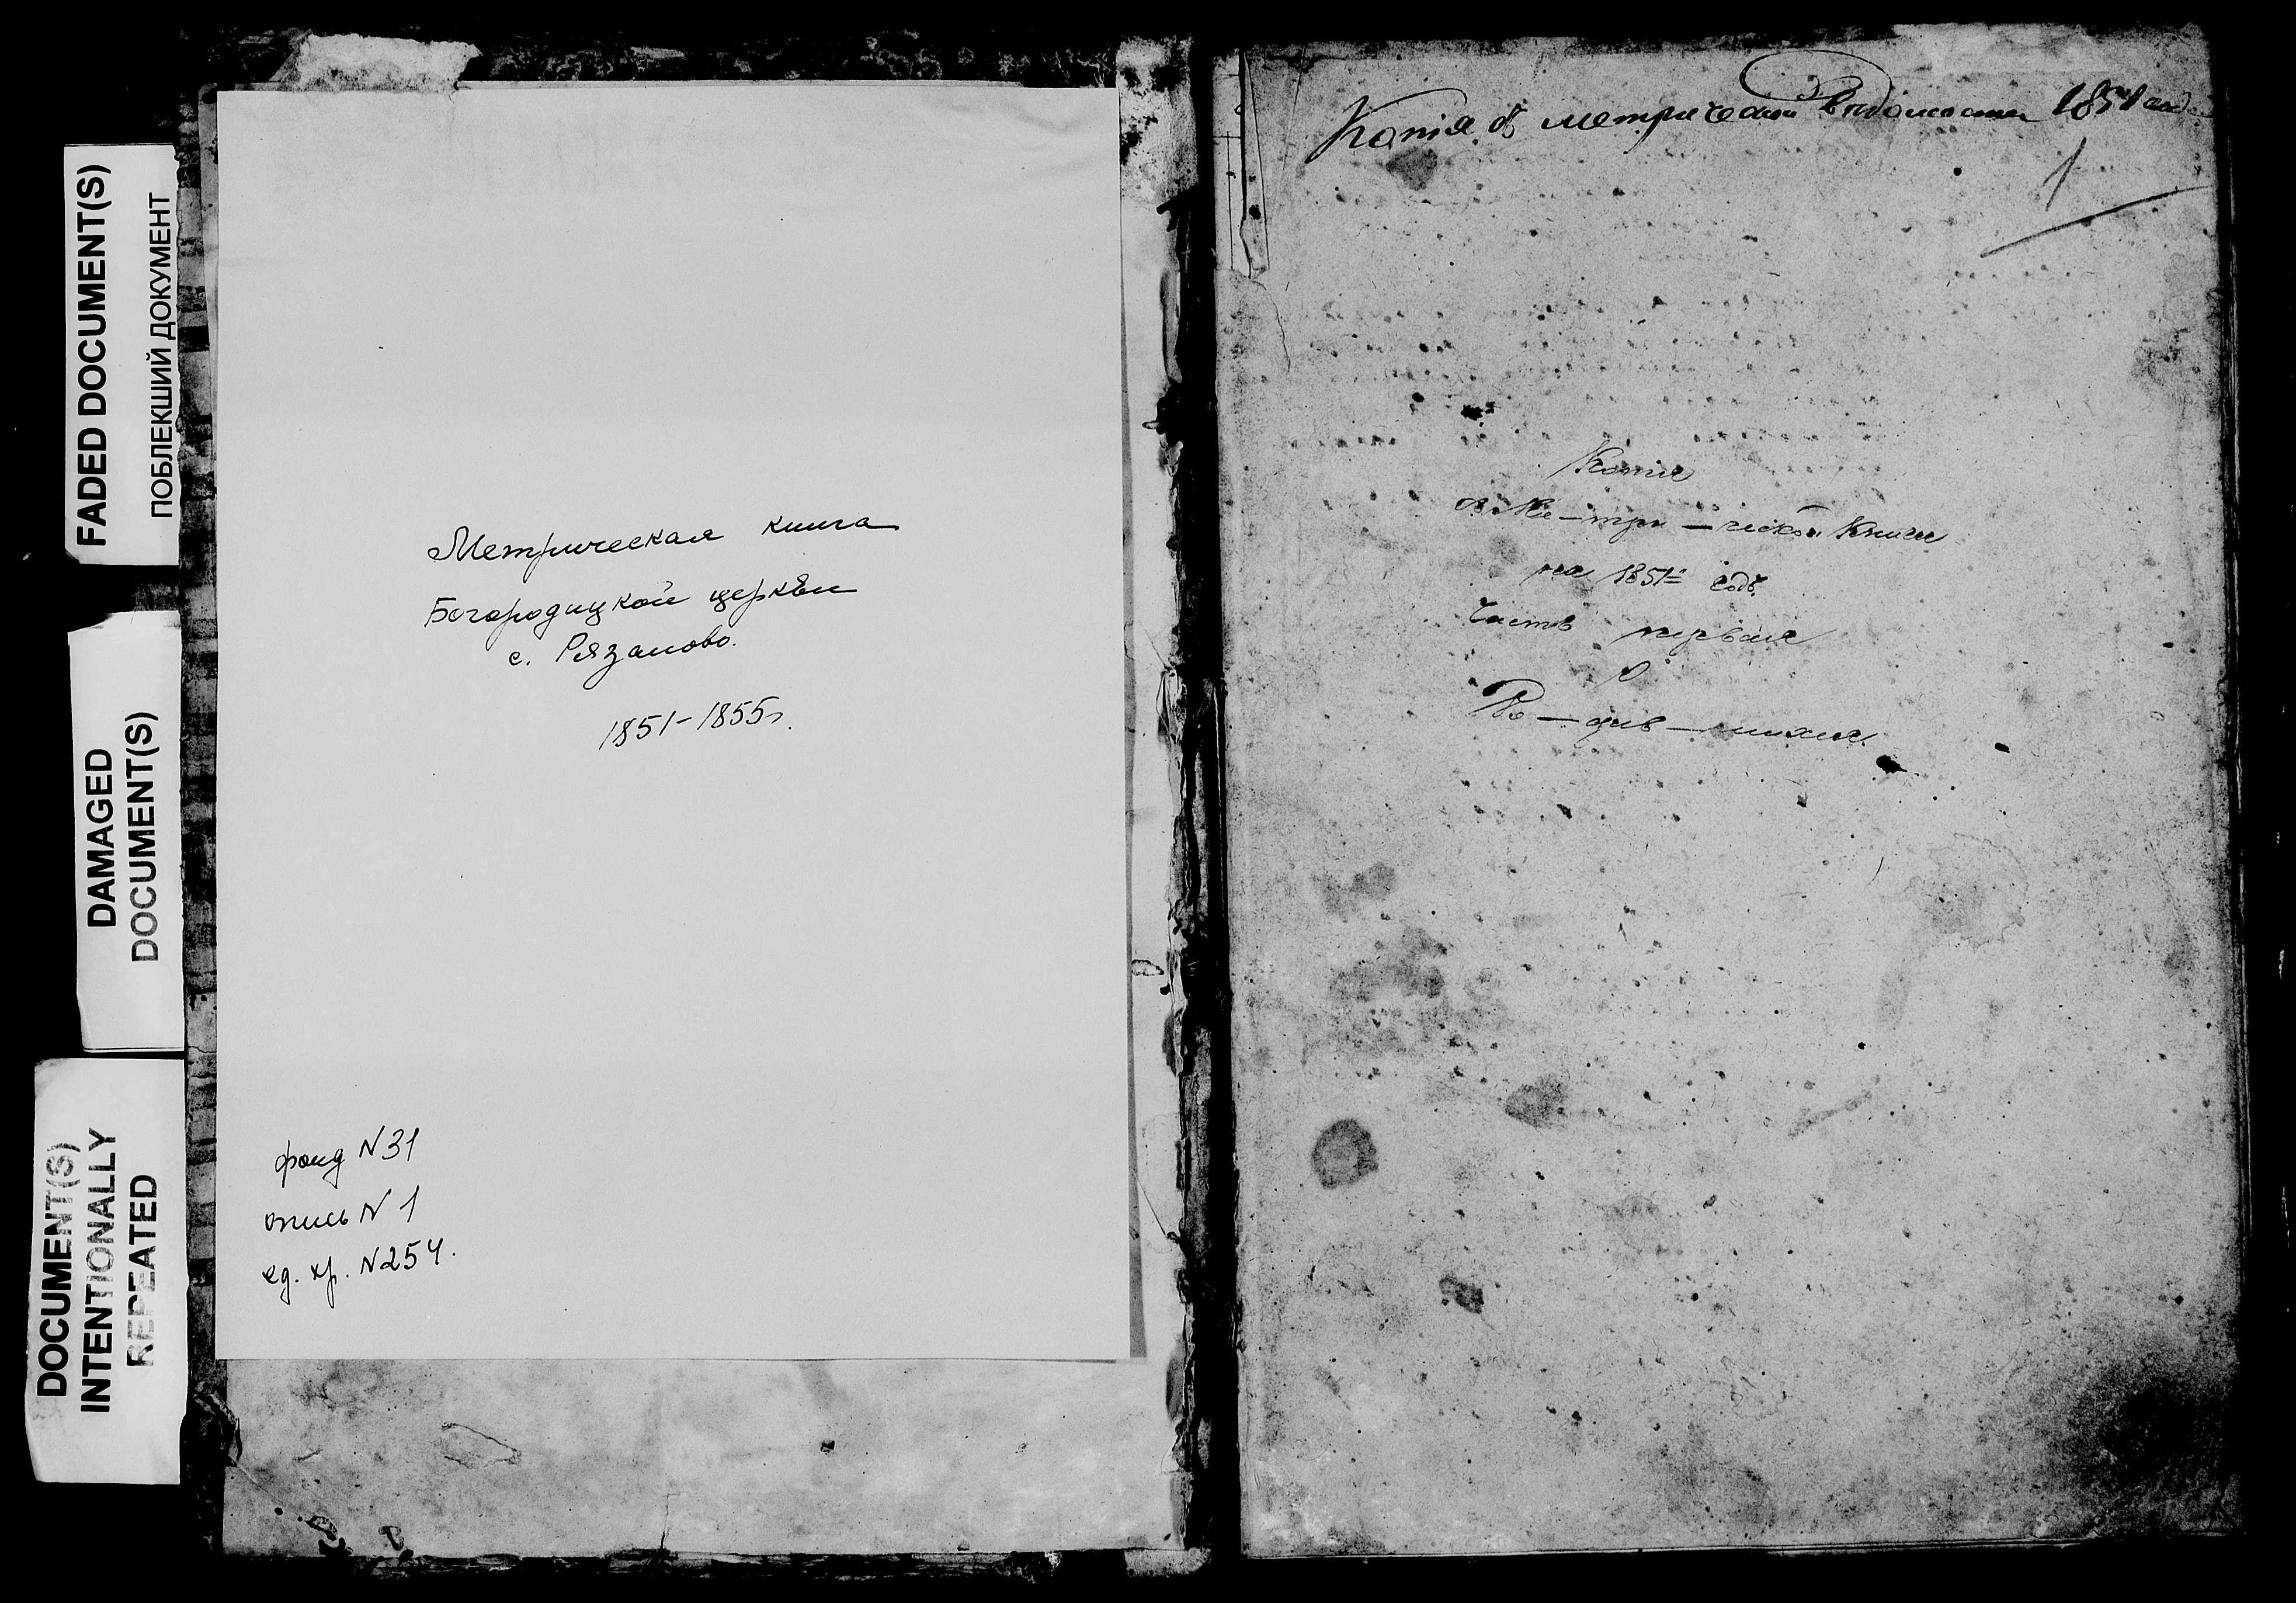 FADED DOCUMENT(S)
ПОБЛЕКШИЙ ДОКУМЕНТ
DAMAGED
DOCUMENT(S)
DOCUMENT(S)
INTENTIONALLY
REPEATED
Метрическая книга
Богородицкой церкви
с. Рязаново.
1851-1855г.
фонд N31
опись N 1
ед. хр. N254.
Копія съ метрической вѣдомости 1851 года
1
Копия
съ Ме-три-ческой Книги
на 1851й годъ.
Часть первая
О
Ро-див-шихся.